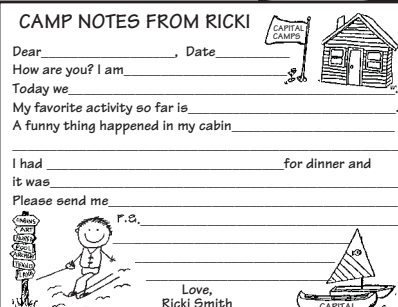 CAMP NOTES FROM RICKI
CAPITAL
CAMPS
Dear____________________, Date__________
How are you? I am____________________
Today we________________________________________.
My favorite activity so far is______________________________.
A funny thing happened in my cabin____________________
__________________________________________________
I had ______________________________for dinner and
it was__________________________________________
Please send me____________________________________
P.S.______________________________
CABINS
ART
POOL
TENNIS
Love,
Ricki Smith
CAPITAL